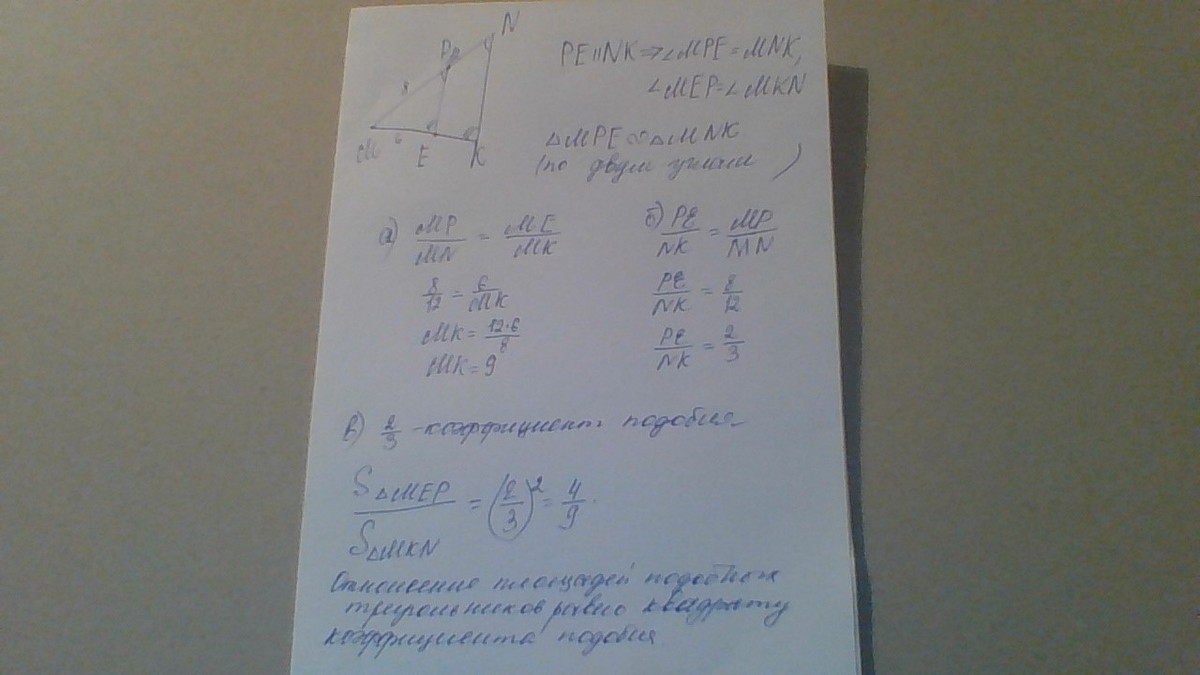 N
P
8
M 6 E K
PE || NK ⇒ ∠MPE = MNK,
∠MEP = ∠MKN
△MPE ∞ △MNK
(по двум углам)
а) MP/MN = ME/MK
8/12 = 6/MK
MK = 12·6/8
MK = 9
б) PE/NK = MP/MN
PE/NK = 8/12
PE/NK = 2/3
в) 2/3 - коэффициент подобия
S△MEP/S△MKN = (2/3)² = 4/9.
Отношение площадей подобных
треугольников равно квадрату
коэффициента подобия.